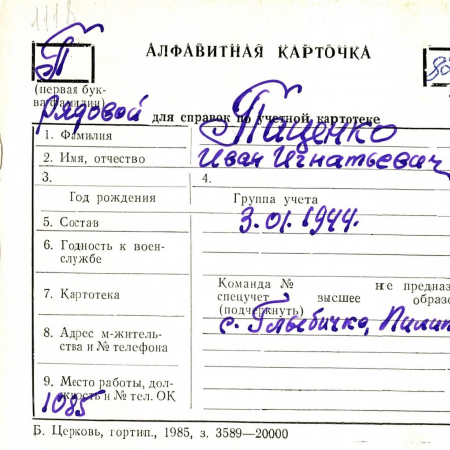 111В
Т
АЛФАВИТНАЯ КАРТОЧКА
(первая бук-
ва фамилии)
Рядовой
для справок по учетной картотеке
1. Фамилия
Тищенко
2. Имя, отчество
Иван Игнатьевич
3.
4.
Год рождения
Группа учета
5. Состав
3.01.1944.
6. Годность к воен-
службе
7. Картотека
Команда № не предназ
спецучет высшее образо
(подчеркнуть)
8. Адрес м-житель-
ства и № телефона
с. Глыбичка, Пилип
9. Место работы, дол-
жность и № тел. ОК
1085
Б. Церковь, гортип., 1985, з. 3589—20000